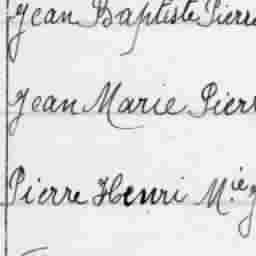 Jean Baptiste Pierre
Jean Marie Pierr
Pierre Henri M.ie